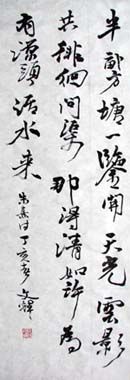 半畝方塘一鑒開天光雲影
共徘徊問渠那得清如許為
有源頭活水來
朱熹詩丁亥 文輝